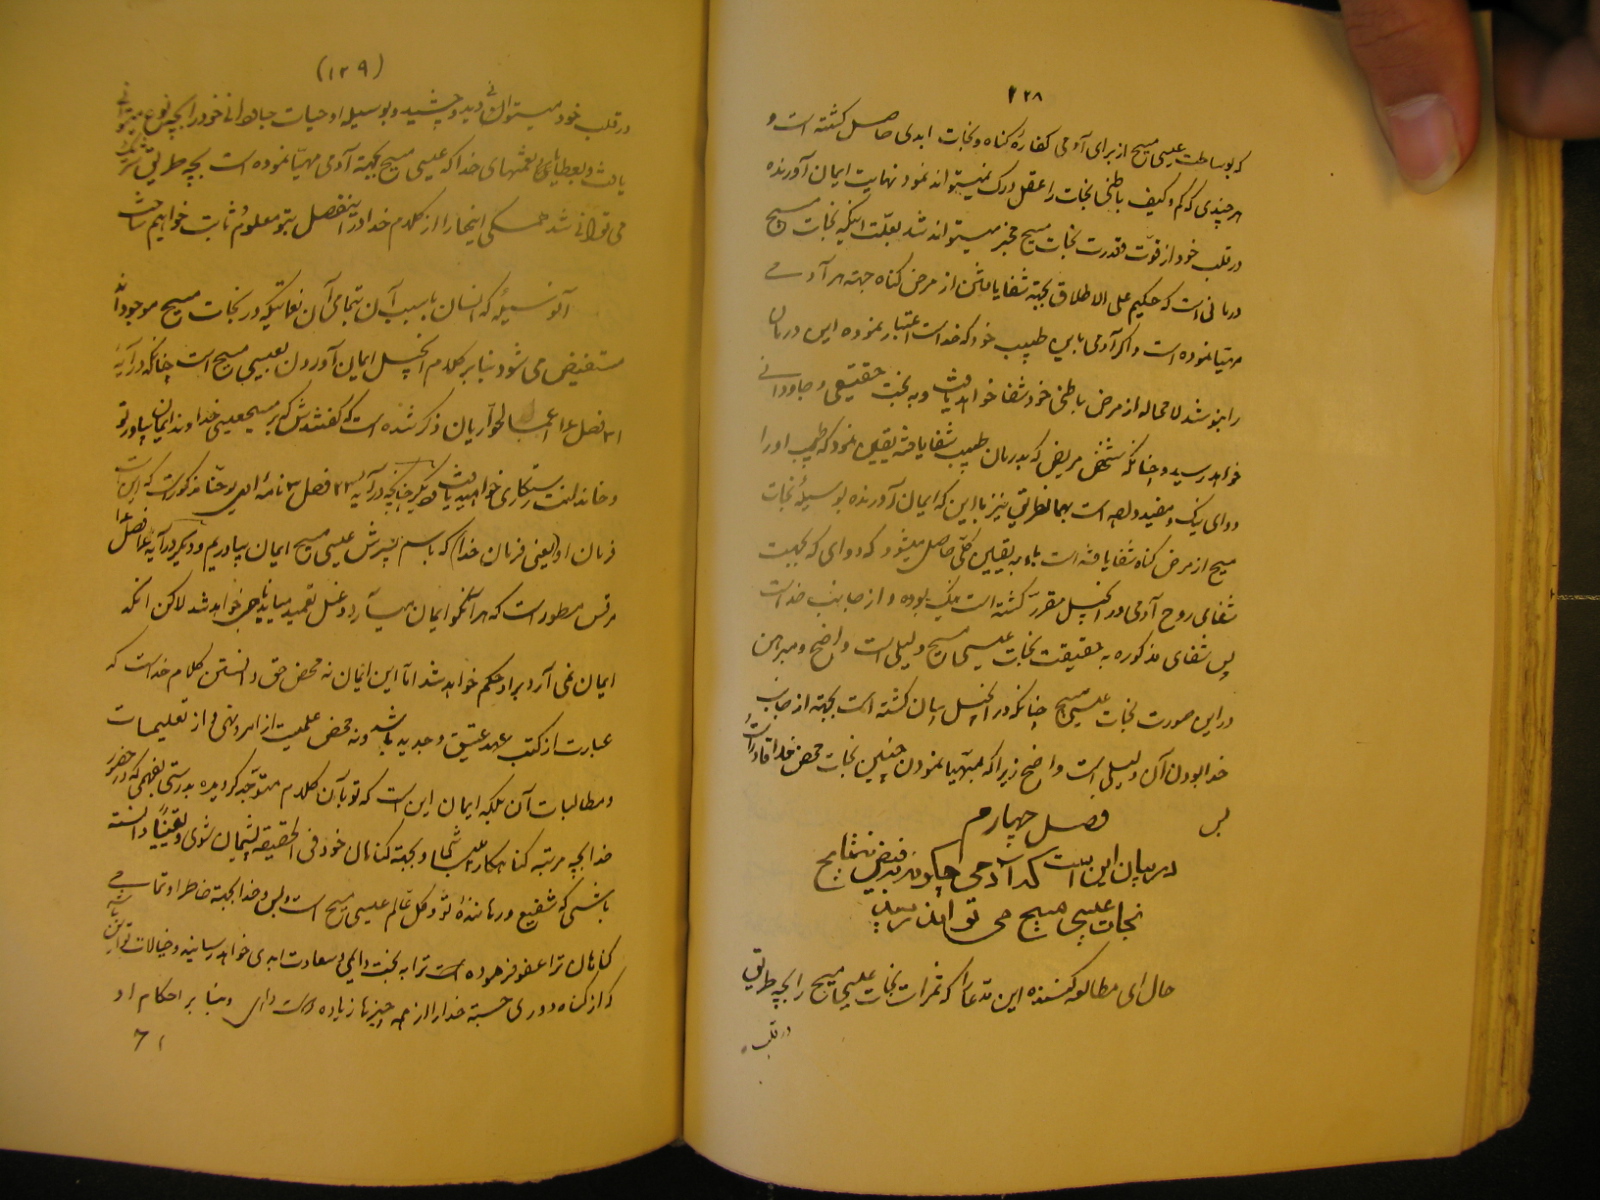 ۱۲۸
که بوساطت عیسی مسیح از برای آدمی کفارهٔ گناه و نجات ابدی حاصل گشته است و
هر چندی که کم و کیف باطنی نجات را عقل درک نمیتواند نمود نهایت ایمان آورنده
در قلب خود از قوّت و قدرت نجات مسیح مخبر میتواند شد بعلّت اینکه نجات مسیح
درمانی است که حکیم علی الاطلاق بجهة شفا یافتن از مرض گناه جهة هر آدمی
مهیّا نموده است و اگر آدمی باین طبیب خود که خداست اعتبار نموده این درمان
را بنوشد لامحاله از مرض باطنی خود شفا خواهد یافت و به بخت حقیقی و جاودانی
خواهد رسید و چنانکه شخص مریض که بدرمان طبیب شفا یافته یقین نمود که طبیب او را
دوای نیک و مفید داده است بهمانطریق نیز باین که ایمان آورنده بوسیلهٔ نجات
مسیح از مرض گناه شفا یافته است باو به یقین کلّی حاصل میشود که دوای که بجهت
شفای روح آدمی در انجیل مقرّر گشته است نیک بوده و از جانب خداست
پس شفای مذکوره به حقیقت نجات عیسی مسیح دلیلی است واضح و مبرهن
در این صورت نجات عیسی مسیح چنانکه در انجیل بیان گشته است بجهة از جانب
خدا بودن آن دلیلی است واضح زیرا که مهیّا نمودن چنین نجات محض خدا قادر است
و بس
فصل چهارم
در بیان این است که آدمی چگونه بفیض نتایج
نجات عیسی مسیح می تواند رسید
حال ای مطالعه کننده این مدعا را که ثمرات نجات عیسی مسیح را بچه طریق
در قلب
(۱۲۹)
در قلب خود میتوانی دید و چشید و بوسیله او حیات جاودانی خود را بچه نوع میتوانی
یافت و بعطاهای نعمتهای خدا که عیسی مسیح بجهة آدمی مهیّا نموده است بچه طریق شریک
می توانی شد همگی اینها را از کلام خدا در اینفصل بتو معلوم و ثابت خواهیم ساخت
آن وسیله که انسان با سبب آن بتمامی آن نعماتیکه در نجات مسیح موجود اند
مستفیض می شود بنابر کلام انجیل ایمان آوردن بعیسی مسیح است چنانکه در آیهٔ
۳۱ فصل ۱۶ اعمال حوّاریان ذکر شده است که گفتندش که بر مسیح عیسی خداوند ایمان بیاور تو
و خاندانت رستگاری خواهید یافت و دیگر چنانچه در آیه ۲۳ فصل ۳ نامهٔ اول یوحنّا مذکور است که این است
فرمان او (یعنی فرمان خدا) که باسم پسرش عیسی مسیح ایمان بیاوریم و دیگر در آیه ۱۶ فصل ۱۶
مرقس مسطور است که هر آنکو ایمان می آرد و غسل تعمید می یابد ناجی خواهد شد لاکن آنکه
ایمان نمی آرد بر او حکم خواهد شد امّا این ایمان نه محض حق دانستن کلام خداست که
عبارت از کتب عهد عتیق و جدید باشد و نه محض علمیت از امر و نهی و از تعلیمات
و مطالبات آن بلکه ایمان این است که تو بآن کلام متوّجه گردیده بدرستی بفهمی که در حضور
خدا بچه مرتبه گناهکار میباشی و بجهة گناهان خود فی الحقیقة پشیمان شوی و یقیناً دانسته
باشی که شفیع و رهانندهٔ تو و کل عالم عیسی مسیح است و بس و خدا بجهة خاطر او تمامی
گناهان ترا عفو فرموده است ترا به بخت دائمی و سعادت ابدی خواهد رسانید و خیالات تو این باشد
که از گناه دوری جسته خدا را از همه چیزها زیاده دوست داری و بنا بر احکام او